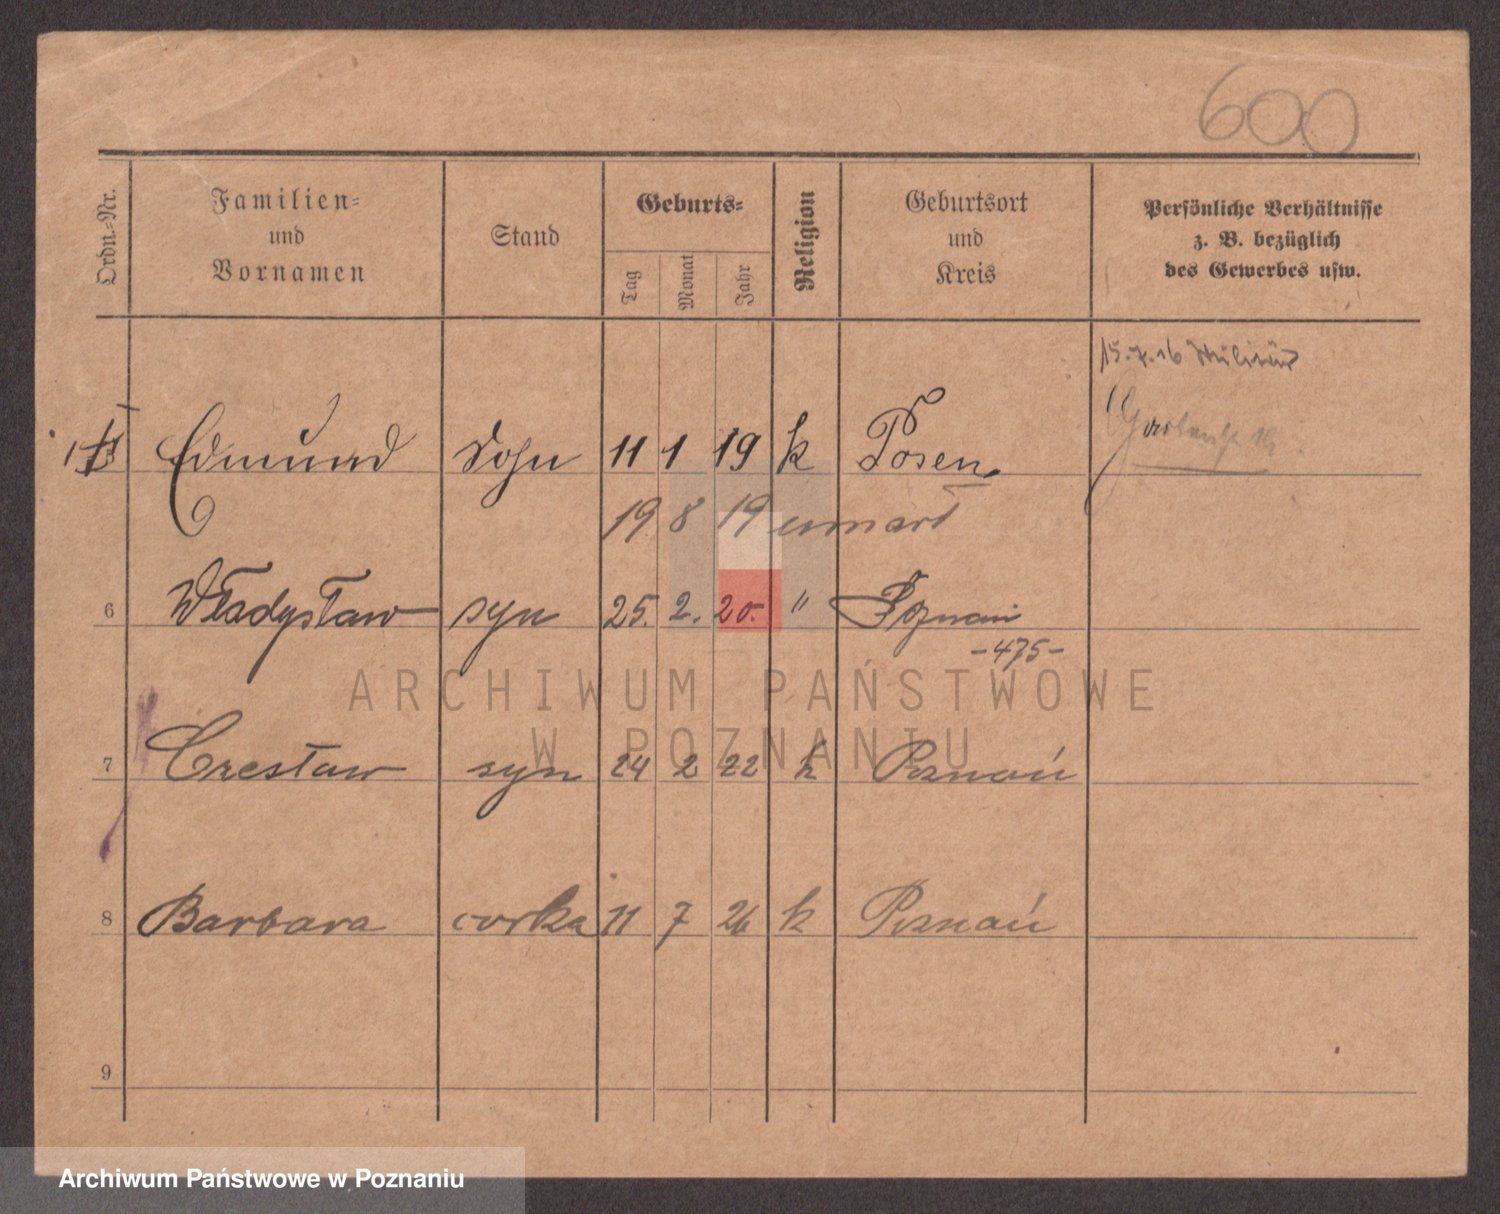 600
Ordn.-Nr.
Familien-
und
Vornamen
Stand
Geburts-
Tag
Monat
Jahr
Religion
Geburtsort
und
Kreis
Persönliche Verhältnisse
z. B. bezüglich
des Gewerbes usw.
15.7.16 Militär
Edmund Sohn 11 1 19 k Posen
19 8 19 umart
6 Władysław syn 25. 2. 20. " Poznań
-475-
ARCHIWUM PAŃSTWOWE
W POZNANIU
7 Czesław syn 24 2 22 k Poznań
8 Barbara corka 11 7 26 k Poznań
9
Archiwum Państwowe w Poznaniu